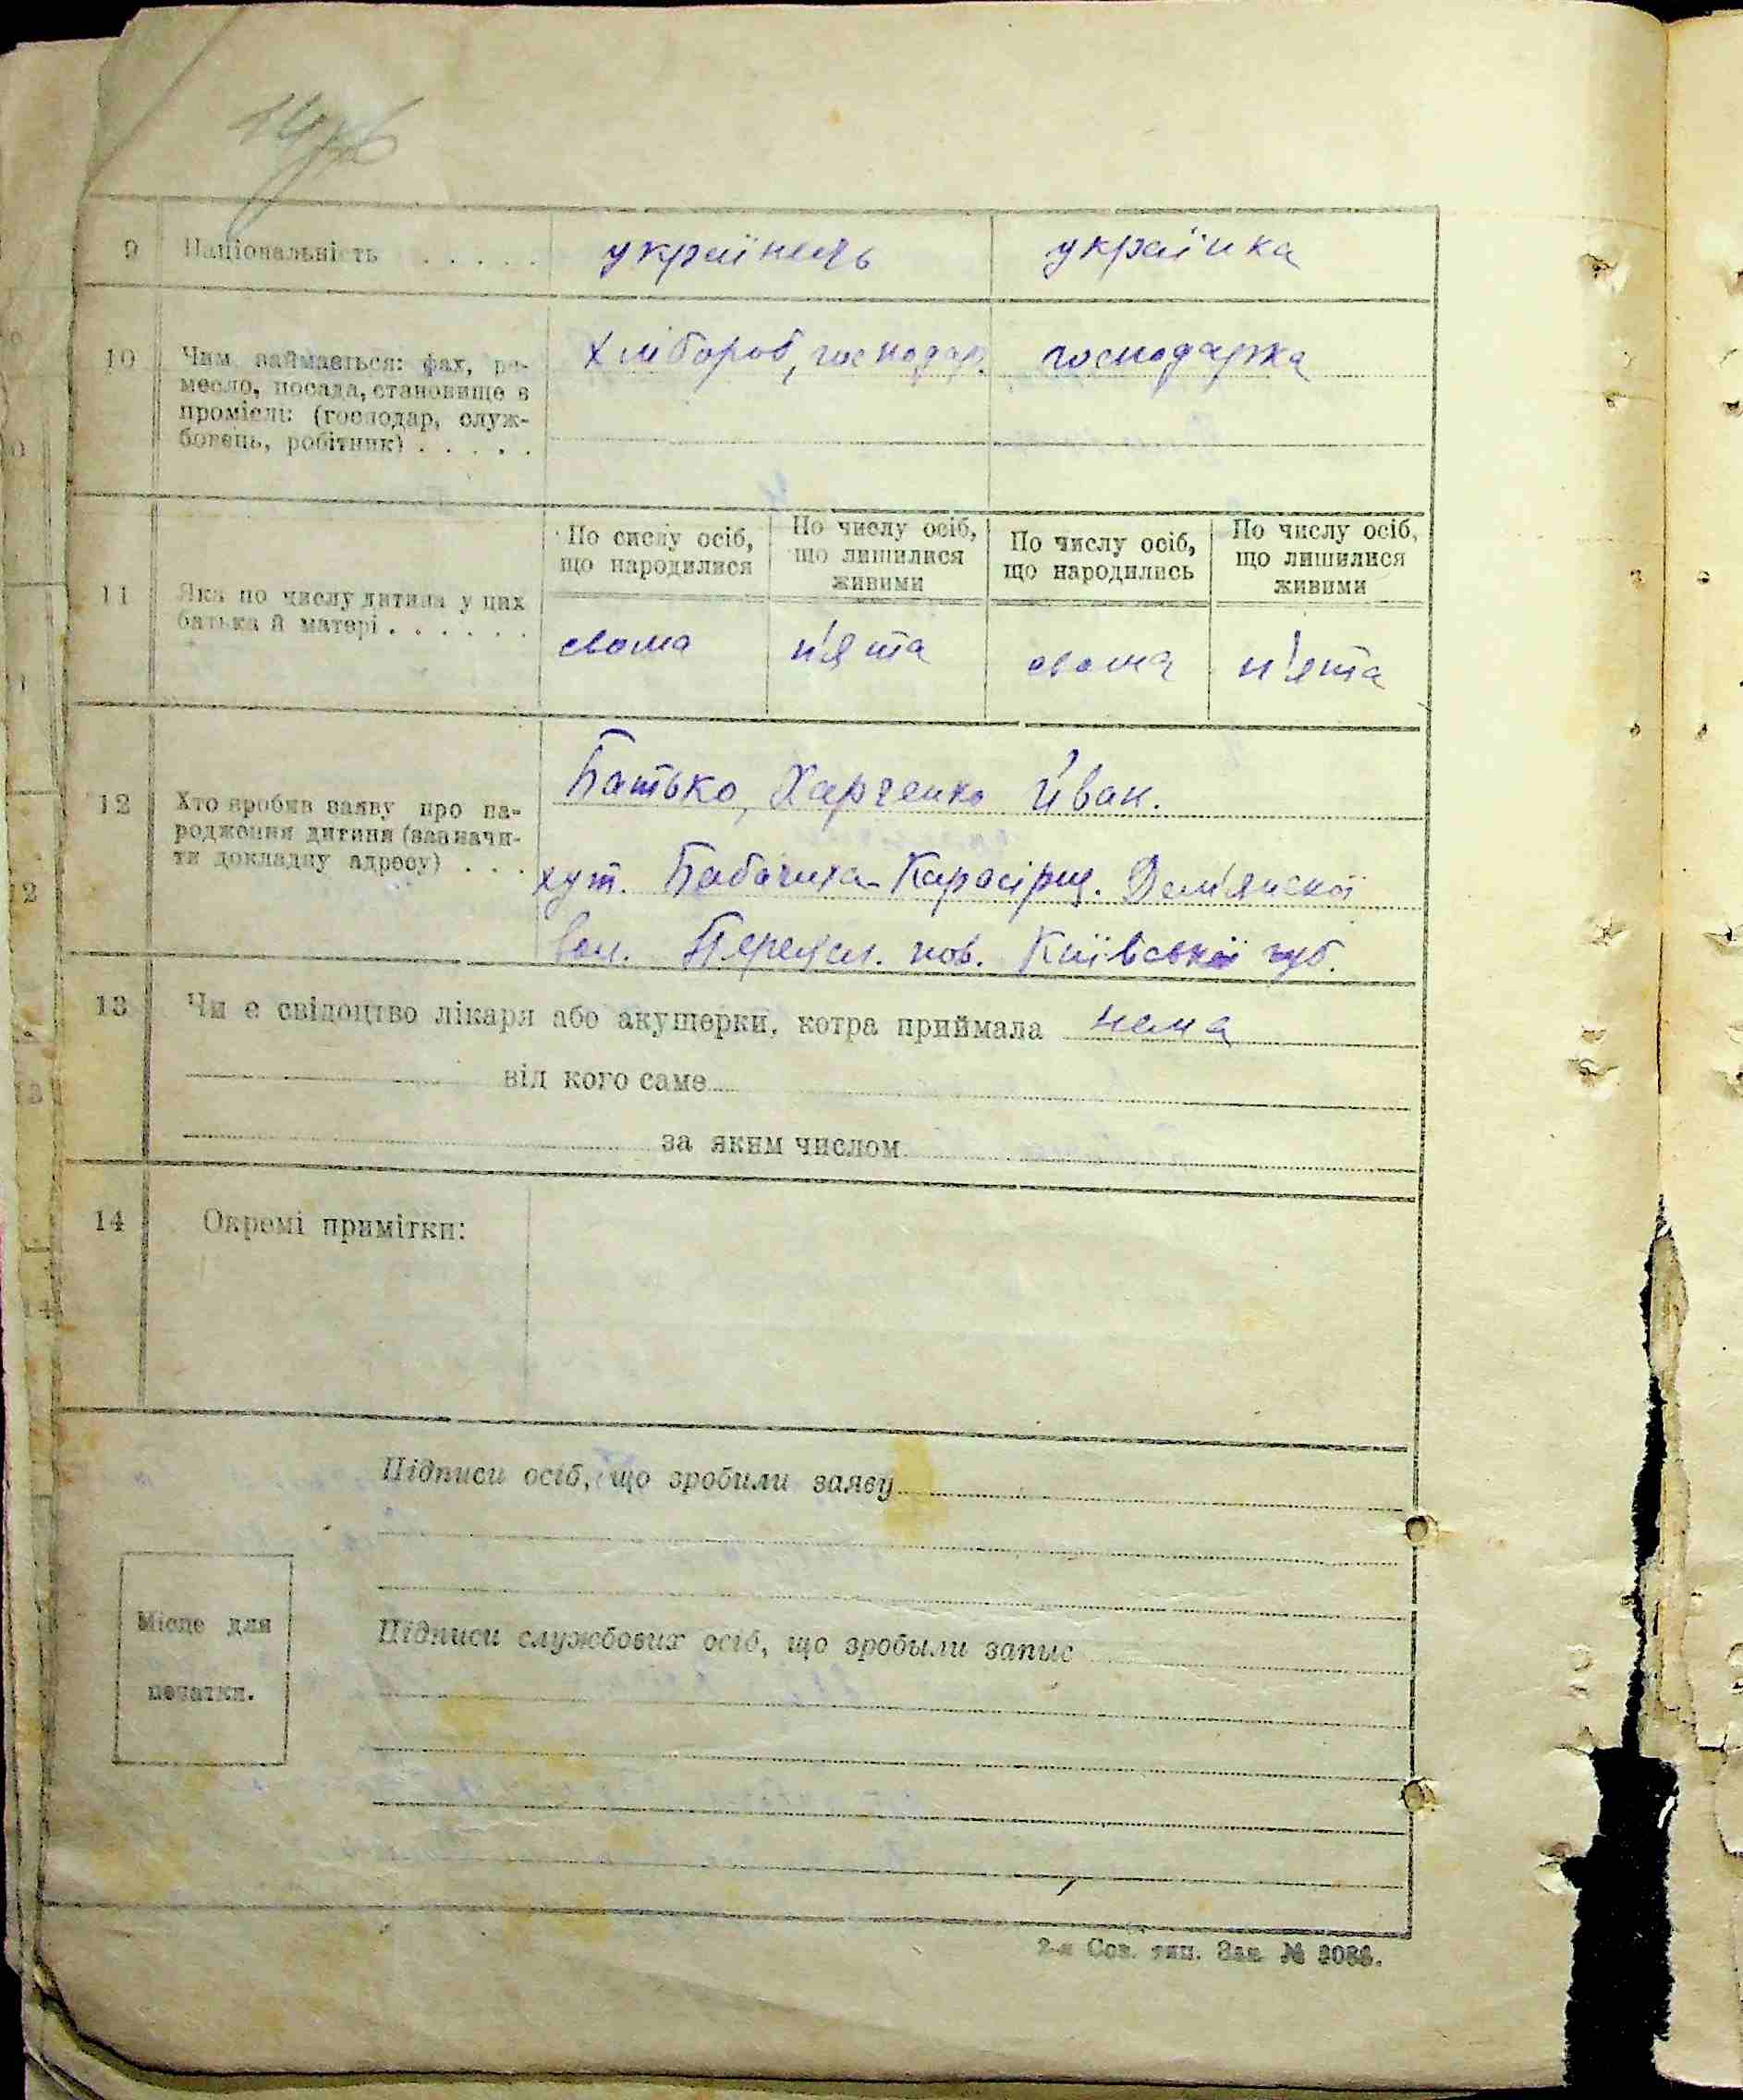 9 Національність . . . . . українець українка
10 Чим займається: фах, ре-
месло, посада, становище в
промислі: (господар, служ-
бовець, робітник) . . . . .
хлібороб, господар. господарка
11 Яка по числу дитина у цих
батька й матері . . . . . .
По числу осіб,
що народилися
По числу осіб,
що лишилися
живими
По числу осіб,
що народились
По числу осіб,
що лишилися
живими
сьома п'ята сьома п'ята
12 Хто зробив заяву про на-
родження дитини (зазначи-
ти докладну адресу) . . .
Батько, Харченко Іван.
хут. Бабачиха - Дем'янскої
вол. Переясл. пов. Київської губ.
13 Чи є свідоцтво лікаря або акушерки, котра приймала нема
від кого саме
за яким числом
14 Окремі примітки:
Підписи осіб, що зробили заяву
Місце для
печатки.
Підписи службових осіб, що зробыли запис
2-я Сов. тип. Зак. №